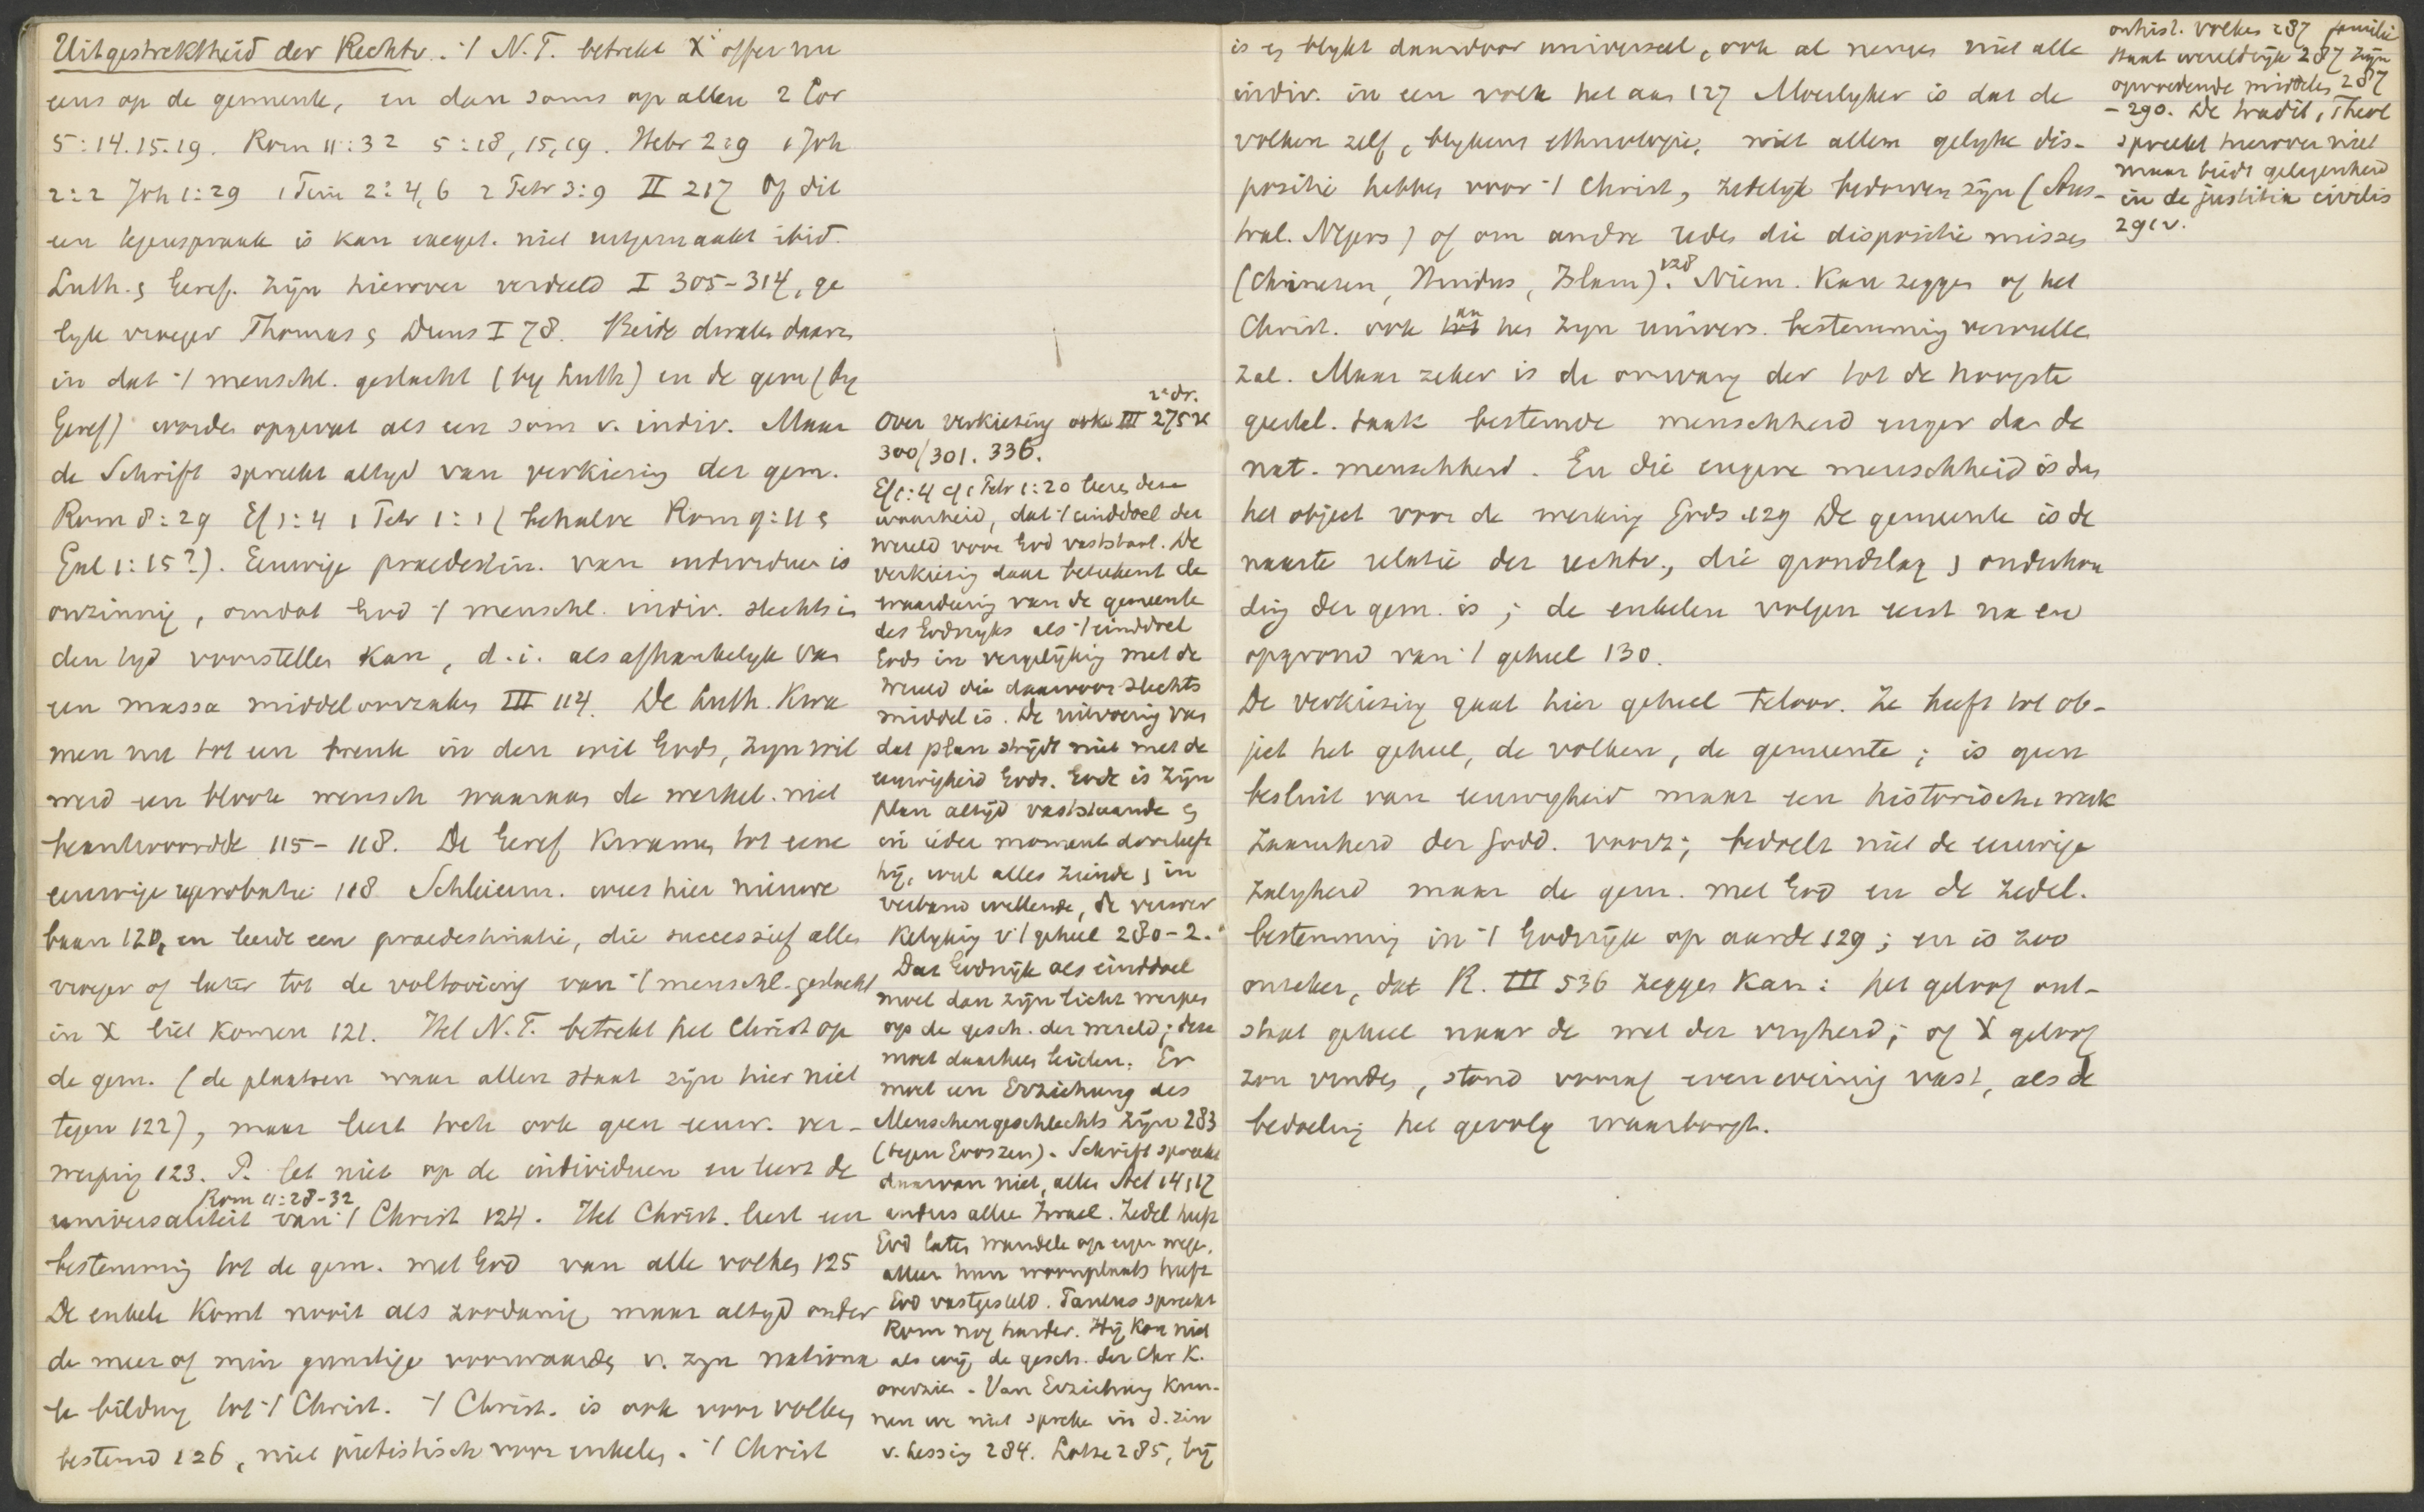 Uitgestrektheid der Rechtv. ·/ N.T. betrekt X' offer nu
eens op de gemeente, en dan soms op allen 2 Cor
5:14.15.19. Rom 11:32 5:18, 15,19. Hebr 2:9 1 Joh
2:2 Joh 1:29 1 Tim 2:4,6 2 Petr 3:9 II 217 Of dit
een tegenspraak is kan exeget. niet uitgemaakt ibid.
Luth. & Geref. zijn hierover verdeeld I 305-314, ge
lyk vroeger Thomas & Duns I 78. Beide dwalen daar
in dat ·/ menschl. geslacht (by Luth) en de gem (by
Geref) worden opgevat als een som v. indiv. Maar
de Schrift spreekt altyd van verkiezing der gem.
Rom 8:29 Ef 1:4 1 Petr 1:1 (behalve Rom 9:11 &
Gal 1:15?). Eeuwige praedestin. van individuen is
onzinnig, omdat God ·/ menschl. indiv. slechts in
den tyd voorstellen kan, d.i. als afhankelyk van
een massa middeloorzaken III 114. De Luth. kwa
men nu tot een breuk in den wil Gods, zyn wil
werd een bloote wensch waaraan de werkel. niet
beantwoordde 115-118. De Geref kwamen tot eene
eeuwige reprobatie 118 Schleierm. wees hier nieuwe
baan 120, en leerde een praedestinatie, die successief allen
vroeger of later tot de voltooiing van ·/ menschl. geslacht
in X liet komen 121. Het N.T. betrekt het Christ op
de gem. (de plaatsen waar allen staat zijn hier niet
tegen 122), maar leert toch ook geen eeuw. ver-
werping 123. P. let niet op de individuen en leert de
Rom 11:28-32
universaliteit van ·/ Christ 124. Het Christ. leert een
bestemming tot de gem. met God van alle volken 125
De enkele komt nooit als zoodanig, maar altyd onder
de meer of min gunstige voorwaarden v. zyn nationa
le bildung tot ·/ Christ. ·/ Christ. is ook voor volken
bestemd 126, niet piëtistisch voor enkelen. ·/ Christ
2e dr.
Over verkiezing ook III 275 v
300/301. 336.
Ef 1:4 cf 1 Petr 1:20 leeren deze
waarheid, dat ·/ einddoel der
wereld voor God vaststaat. De
verkiezing daar beteekent de
waardering van de gemeente
des Godsryks als ·/ einddoel
Gods in vergelyking met de
wereld die daarvoor slechts
middel is. De uitvoering van
dat plan strijdt niet met de
eeuwigheid Gods. Gode is Zijn
plan altijd vaststaande &
in ieder moment doorleeft
hij, wyl alles ziende & in
verband willende, de verwer
kelyking v ·/ geheel 280-2.
Dat Godsrijk als einddoel
moet dan zijn licht werpen
op de gesch. der wereld; deze
moet daarheen leiden. Er
moet een Erziehung des
Menschengeschlechts zijn 283
(tegen Groszen). Schrift spreekt
daarvan niet, alleen Act 14,17
anders alleen Israel. Zedel heeft
God laten wandele op eigen wege,
alleen hun woonplaats heeft
God vastgesteld. Paulus spreekt
Rom nog harder. Hij kon niet
als wij de gesch. der Chr K.
overzien. Van Erziehung kun-
nen we niet spreken in d. zin
v. Lessing 284. Lotze 285, bij
is & blykt daardoor universeel, ook al nemen niet alle
indiv. in een volk het aan 127 Moeilyker is dat de
volken zelf, blykens ethnologie, niet allen gelyke dis-
positie hebben voor ·/ Christ, zedelyk bedorven zijn (Aus-
tral. Negers) of om andre redes die dispositie missen
(Chineezen, Hindus, Islam). 128 Niem. kan zeggen of het
Christ. ook aan hen zyn univers. bestemming vervullen
zal. Maar zeker is de omvang der tot de hoogste
geestel. taak bestemde menschheid enger dan de
nat. menschheid. En die engere menschheid is dus
het object voor de werking Gods 129 De gemeente is de
naaste relatie der rechtv., die grondslag & onderhou
ding der gem. is; de enkelen volgen eerst na en
opgrond van ·/ geheel 130.
De verkiezing gaat hier geheel teloor. Ze heeft tot ob-
ject het geheel, de volken, de gemeente; is geen
besluit van eeuwigheid maar een historische werk
zaamheid der Godd. voorz; bedoelt niet de eeuwige
zaligheid maar de gem. met God en de zedel.
bestemming in ·/ Godsrijk op aarde 129; en is zoo
onzeker, dat R. III 536 zeggen kan: het geloof ont-
staat geheel naar de wet der vryheid; of X geloof
zou vinden, stond vooraf evenweinig vast, als de
bedoeling het gevolg waarborgt.
onhist. volken 287 familie
staat wereldrijk 287 zijn
opvoedende middelen 287
-290. De tradit, Theol
spreekt hierover niet
maar biedt gelegenheid
in de justitia civilis
291v.